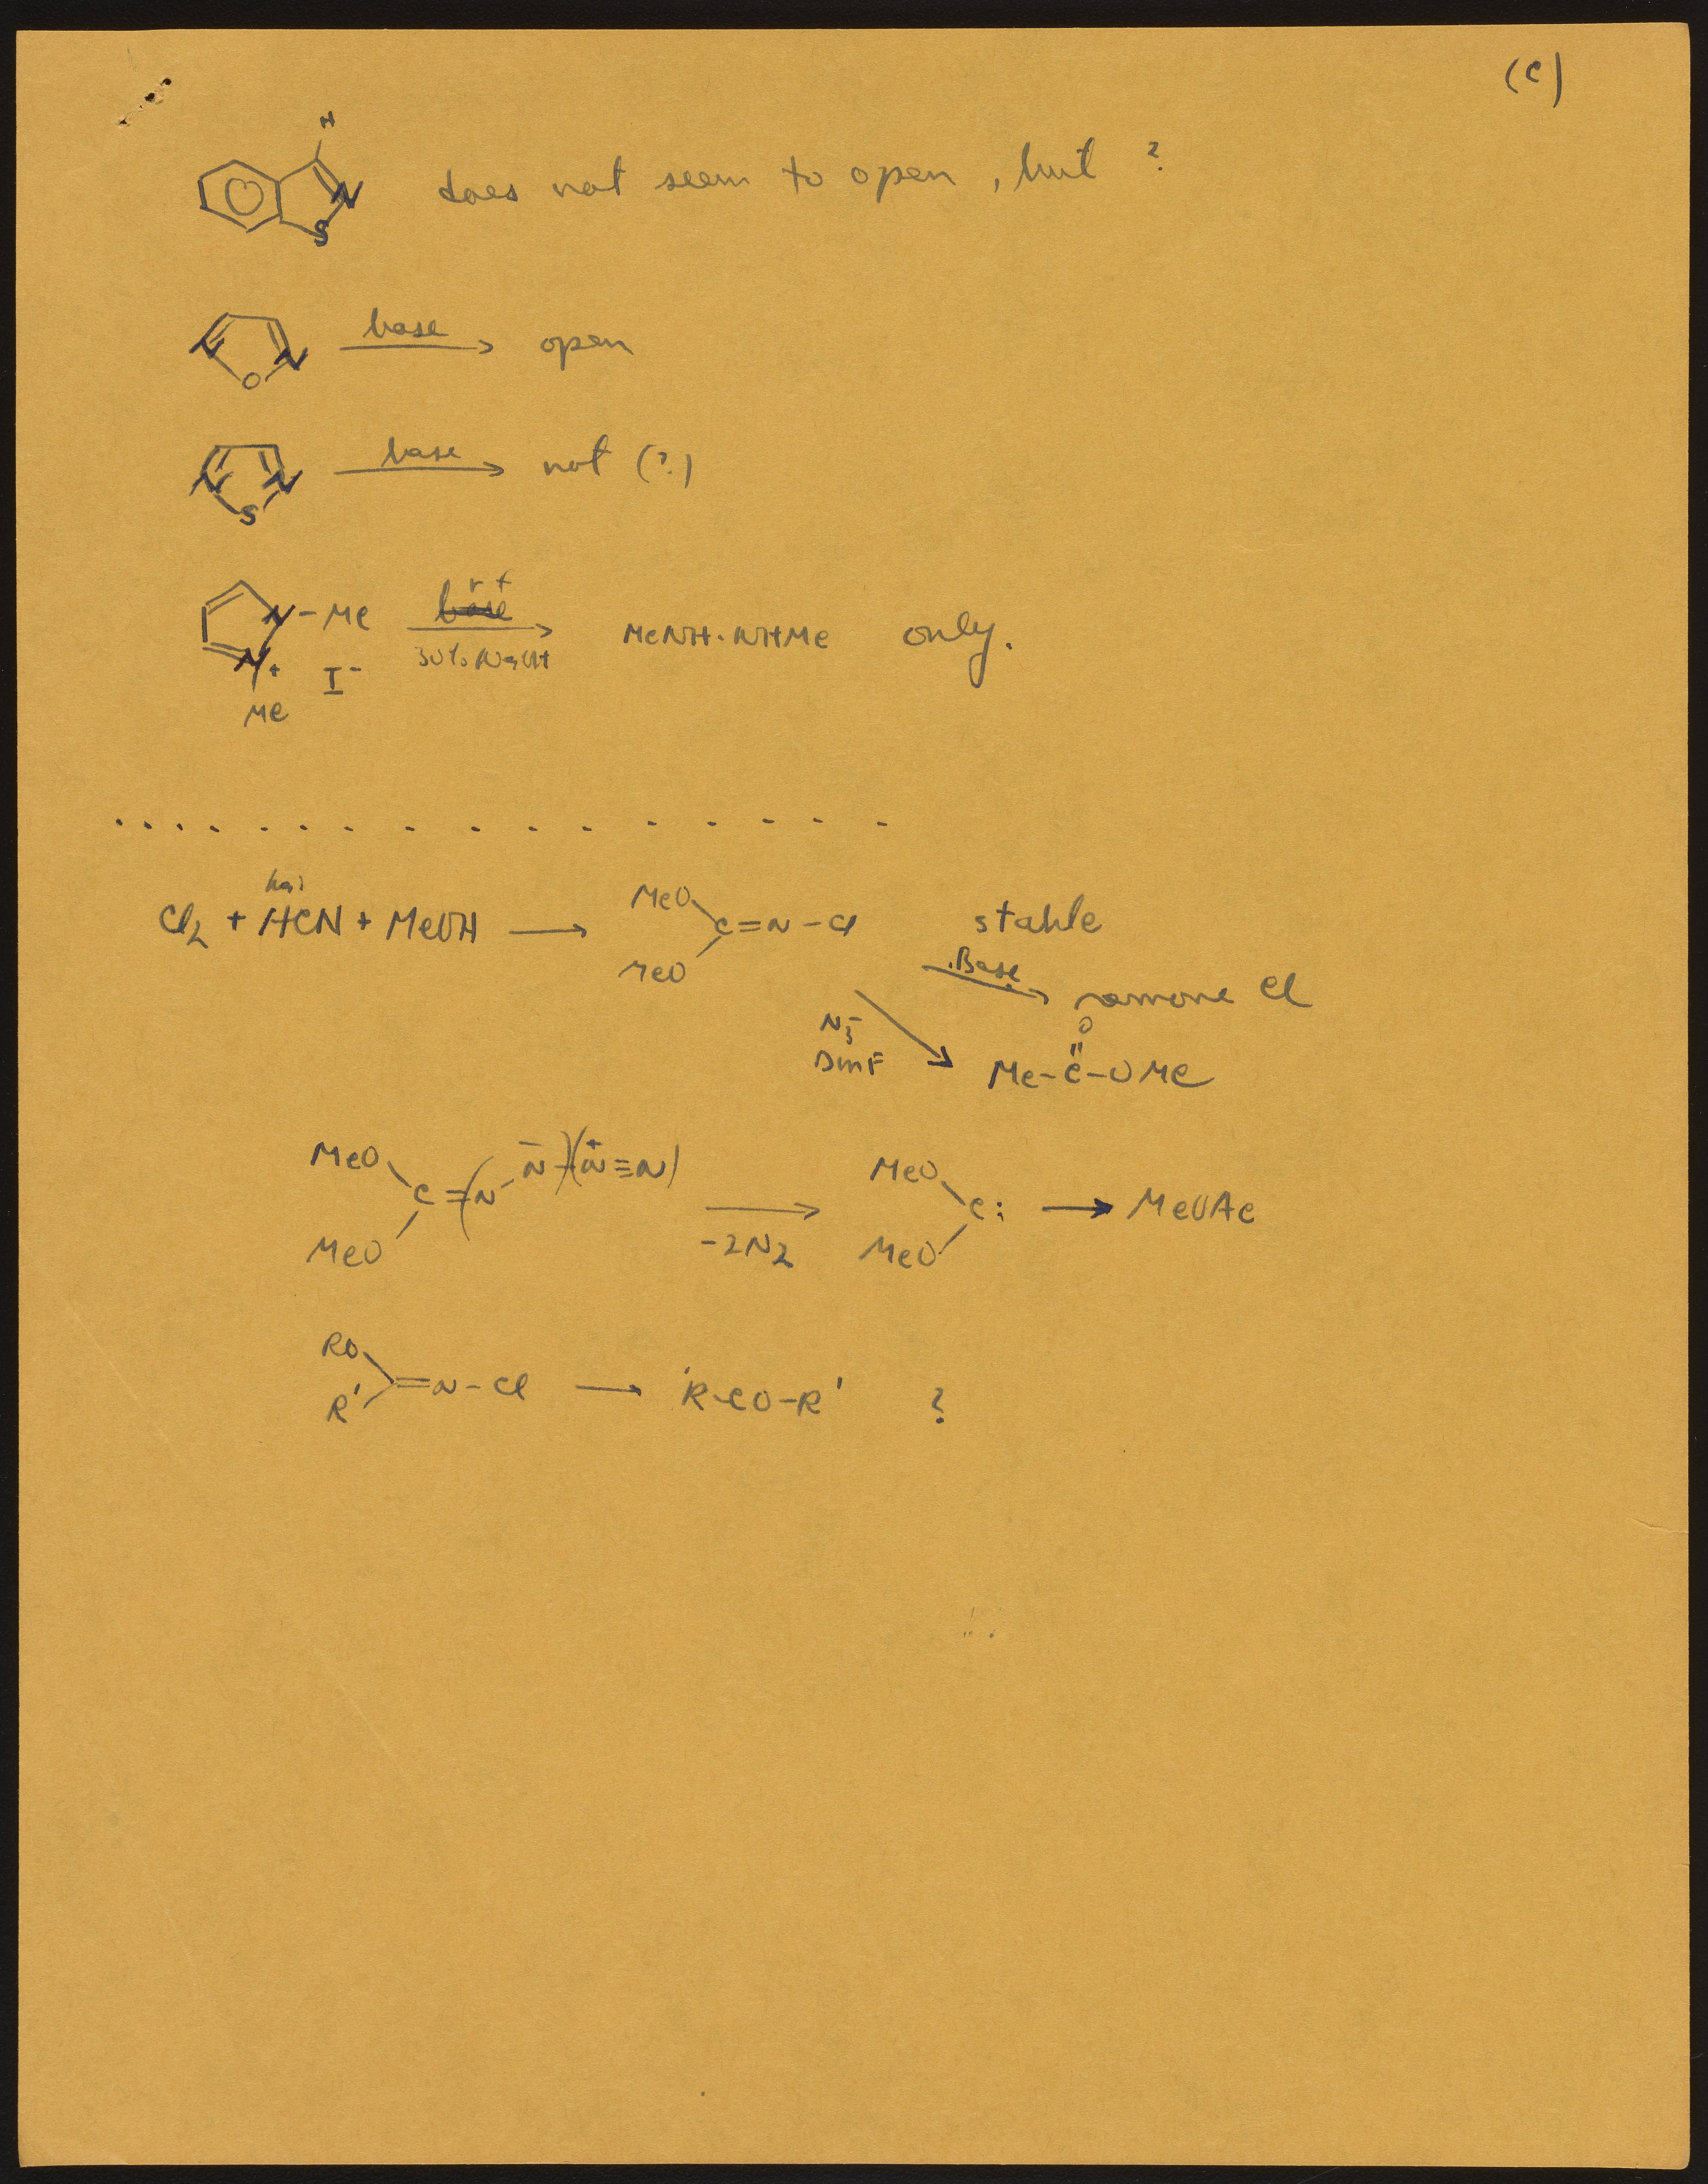 (C)
H
N
S
does not seem to open, but ?
N N
O
base
open
N N
S
base
not (?)
N-Me
N+
Me
I-
base
30% NaOH
MeNH·NHMe only.
. . . . . . . . . . . . . . . . .
Cl2 + HCN + MeOH →
MeO
C=N-Cl
MeO
stable
Base
remove Cl
N3-
DMF
O
Me-C-OMe
MeO
C=(N-N-)(N+≡N)
MeO
-2N2
MeO
C:
MeO
→ MeOAc
RO
=N-Cl → R-CO-R' ?
R'